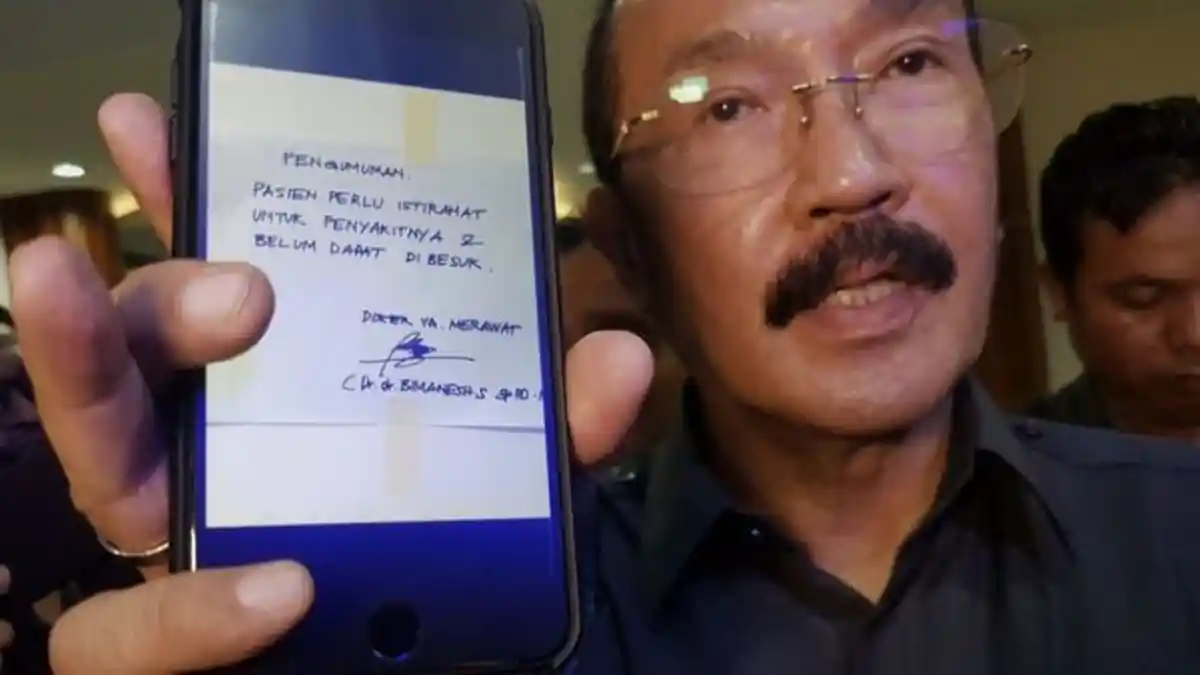 PENGUMUMAN.
PASIEN PERLU ISTIRAHAT
UNTUK PENYAKITNYA &
BELUM DAPAT DI BESUK.
DOKTER YG. MERAWAT
( Dr. dr. BIMANESH.S Sp PD -